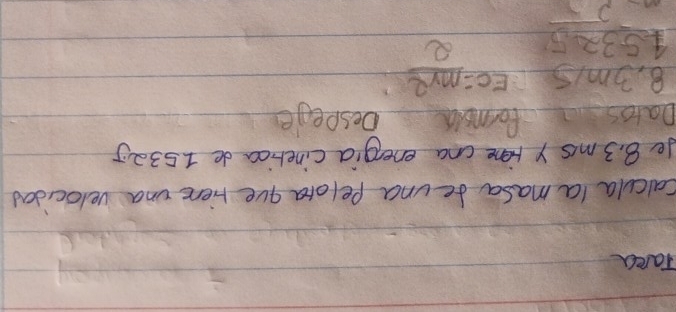 Tarea
Calcula la masa de una Pelota que tiene una velocidad
de 8.3 m/s y tiene una energía cinetica de 1532J
Datos Formula Despeje
8,3 m/s Ec=mv2
2
1532J